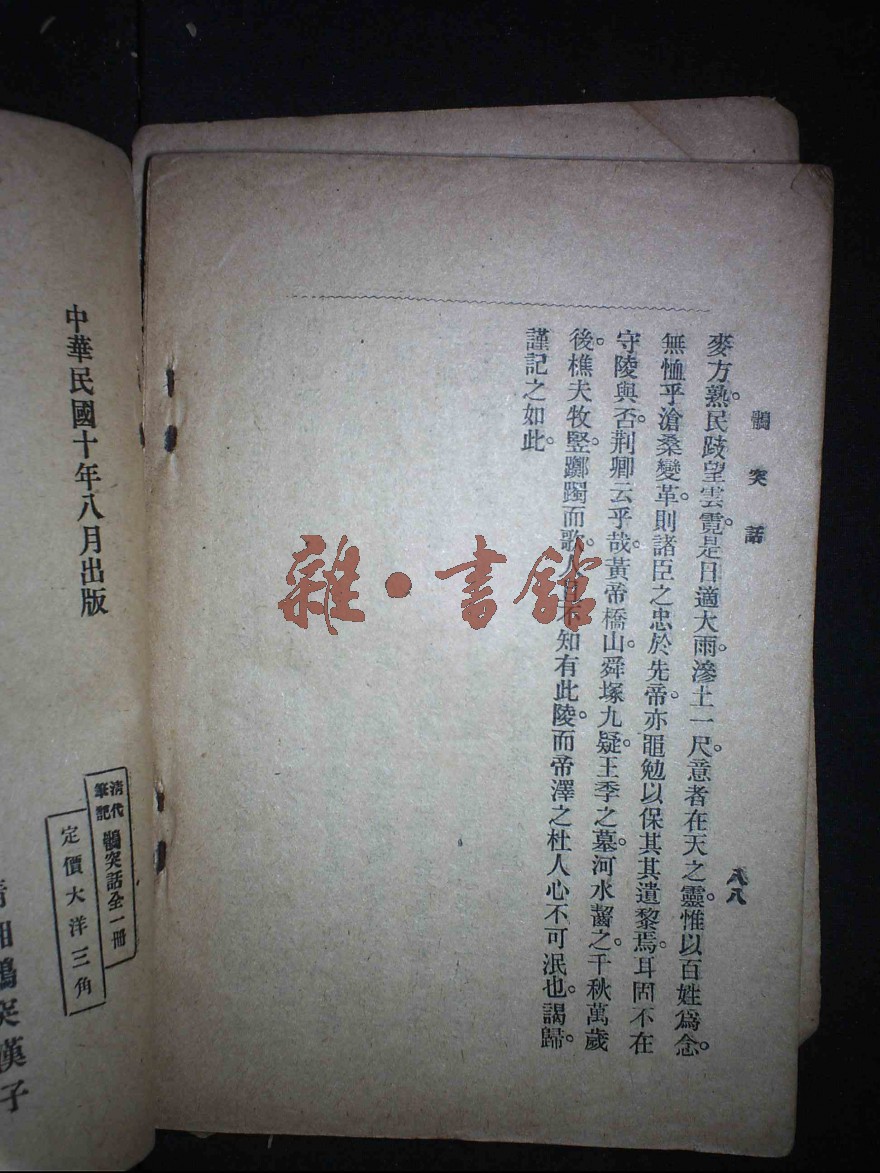 鶻突話
八八
麥方熟。民歧望雲霓。是日適大雨。滲土一尺。意者在天之靈。惟以百姓爲念。
無恤乎滄桑變革。則諸臣之忠於先帝。亦黽勉以保其其遺黎焉。耳固不在
守陵與否。荆卿云乎哉。黃帝橋山。舜塚九疑。王季之墓。河水齧之。千秋萬歲
後。樵夫牧豎。躑躅而歌。人 知有此陵。而帝澤之杜人心不可泯也。謁歸。
謹記之如此。
雜·書館
中華民國十年八月出版
清代筆記
鶻突話全一冊
定價大洋三角
湘鶻突漢子